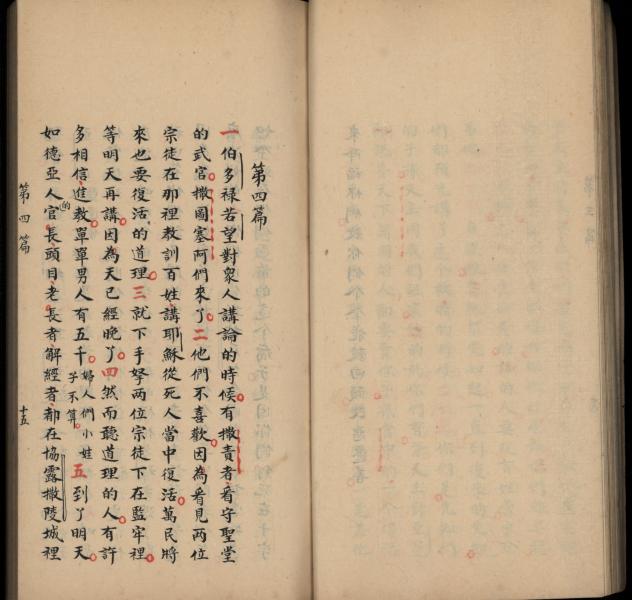 第四篇
一伯多祿若望對衆人講論的時候有撒責者看守聖堂
的武官撒圖塞阿們來了二他們不喜歡因為看見两位
宗徒在那裡教訓百姓講耶穌從死人當中復活萬民將
來也要復活的道理三就下手拏两位宗徒下在監牢裡
等明天再講因為天已經晚了四然而聽道理的人有許
多相信進教單單男人有五千婦人們小娃子不算五到了明天
如德亞人的官長頭目老長者解經者都在協露撒陵城裡
第四篇
十五